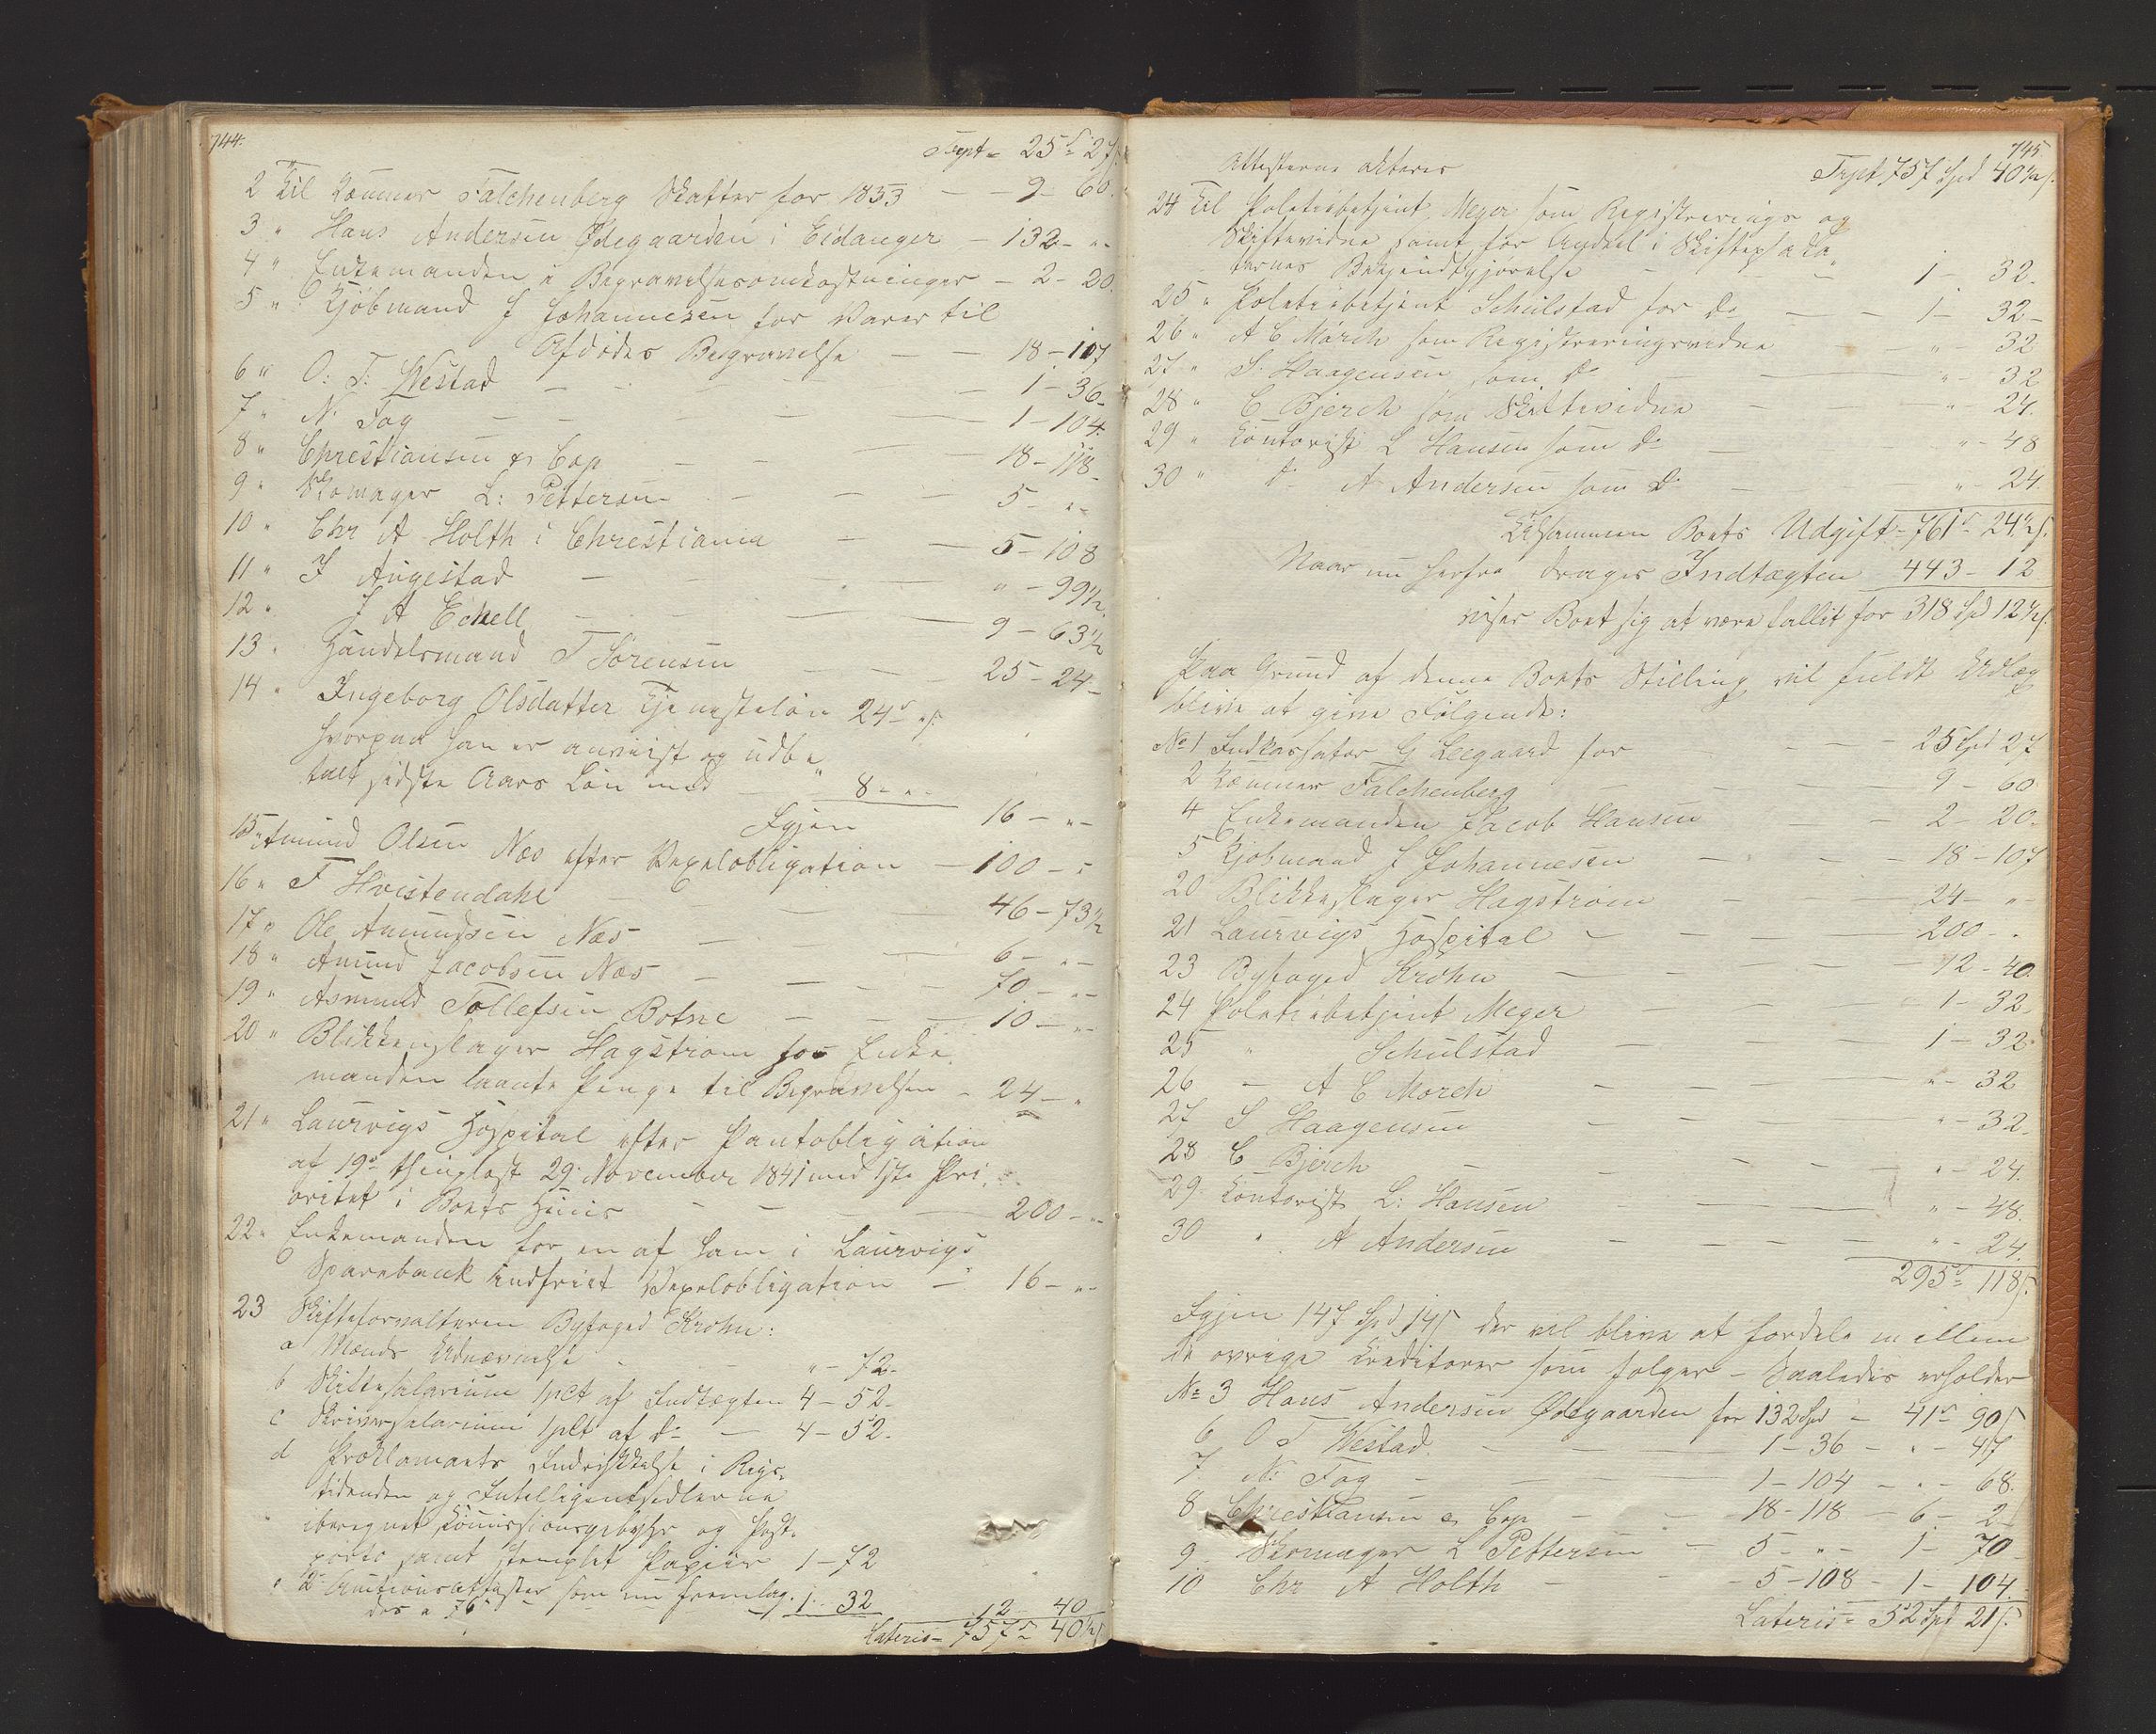 744.
Trpt = 25 S 27 s.
2 Til Kæmner Falchenberg Skatter for 1853 — — 9 - 60.
3 " Hans Andersen Ødegaarden i Eidanger — 132 - " -
4 " Enkemanden i Begravelsesomkostninger — 2 - 20.
5 " Kjöbmand J Johannesen for Varer til
Afdödes Begravelse — — 18 - 107
6 " O: T: Westad — — — 1 - 36 -
7 " N. Fog — — — — 1 - 104.
8 " Chrestiansen & Cop — — — 18 - 118
9 " Skomager L: Pettersen — — — 5 - " -
10 " Chr A Holth i Chrestiania — — 5 - 108
11 " J Augestad — — — " - 99 1/2
12 " J A Eckell — — — 9 - 63 1/2
13 " Handelsmand T Sörensen — — — 25 - 24 -
14 " Ingeborg Olsdatter Tjenestelön 24 S " s.
hvorpaa hun er anviist og udbe
talt sidste Aars Lön med — " 8 - " -
Igjen 16 - " -
15 " Amund Olsen Næs efter Vexelobligation — 100 - "
16 " F Hvistendahl — — — 46 - 73 1/2
17 " Ole Amundsen Næs — — 6 - " -
18 " Amund Jacobsen Næs — — — 70 - " -
19 " Asmund Tollefsen Botne — — — 10 - " -
20 " Blikkenslager Hagstrom for Enke
manden laante Penge til Begravelsen — 24 - "
21 " Laurvigs Hospital efter Pantobligation
af 19de thinglæst 29. November 1841 med 1ste Pri,
oritet i Boets Huus — — — 200 - " -
22 " Enkemanden for en af ham i Laurvigs
Sparebank indfriet Vexelobligation — 16 - " -
23 Skifteforvalteren Byfoged Krohn:
a Mænds Udnævnelse - - " - 72 -
b Skiftesalarium 1 pCt af Indtægten 4 - 52 -
c Skriversalarium 1 pCt af do — 4 - 52.
d Proklamaets Indrykkelse i Rigs-
tidenden og Intelligentsedlerne
iberegnet Commissionsgebyhr og Post-
porto samt stemplet Papiir 1 - 72
e 2de Auctionsattester som nu fremlæg.
des 1 - 32 12 - 40
Lateris = 757 S 40 1/2 s
745
Attesterne akteres Trspt 757 Spd 40 1/2 s.
24 Til Politiebetjent Meyer som Registrerings og
Skiftevidne samt for Andeel i Skifteplaka-
ternes Bekjendtgjörelse — — 1 - 32.
25 " Politiebetjent Schulstad for do — — 1 - 32 -
26 " A C Mörch som Registreringsvidne — " - 32
27 " S. Haagensen som do — — " - 32
28 " C Bjerch som Skiftevidne — — " - 24.
29 " Contorist L Hansen som do — " - 48
30 " do A Andersen som do — " - 24.
Tilsammen Boets Udgift = 761 S 24 1/2 s.
Naar nu herfra drages Indtægten 443 - 12
viser Boet sig at være fallit for 318 Spd 12 1/2 s.
Paa Grund af denne Boets Stilling vil fuldt Udlæg
blive at give Fölgende:
No 1 Indkassator G Leegaard for — — — 25 Spd 27
2 Kæmner Falchenberg — — — 9 - 60
4 Enkemanden Jacob Hansen — — 2 - 20.
5 Kjöbmand J Johannesen — — — 18 - 107
20 Blikkeslager Hagström — — 24 - " -
21 Laurvigs Hospital — — — — 200 - "
23 Byfoged Krohn — — — — 12 - 40.
24 Politiebetjent Meyer — — — 1 - 32 -
25 " Schulstad — — — 1 - 32.
26 - A C Morch - — — " - 32
27 S Haagensen — — — " - 32 -
28 C Bjerch — — — — " - 24.
29. Contorist L: Hansen — — — " - 48.
30 " A Andersen — — — " - 24.
295 S 118 s.
Igjen 147 Spd 14 s der vil blive at fordele mellem
de övrige Creditorer som fölger — Saaledes erholder
No 3 Hans Andersen Ødegaarden for 132 Spd — 41 S 90 s
6 O T Westad. — — — 1 - 36 — " - 47
7. N: Fog — — — 1 - 104 — " - 68.
8 Chrestiansen & Cop — — 18 - 118 — 6 - 2 -
9 - Skomager L Pettersen — 5 - " - 1 - 70 -
10 Chr A Holth — — 5 - 108 - 1 - 104.
Lateris = 52 Spd 21 s.